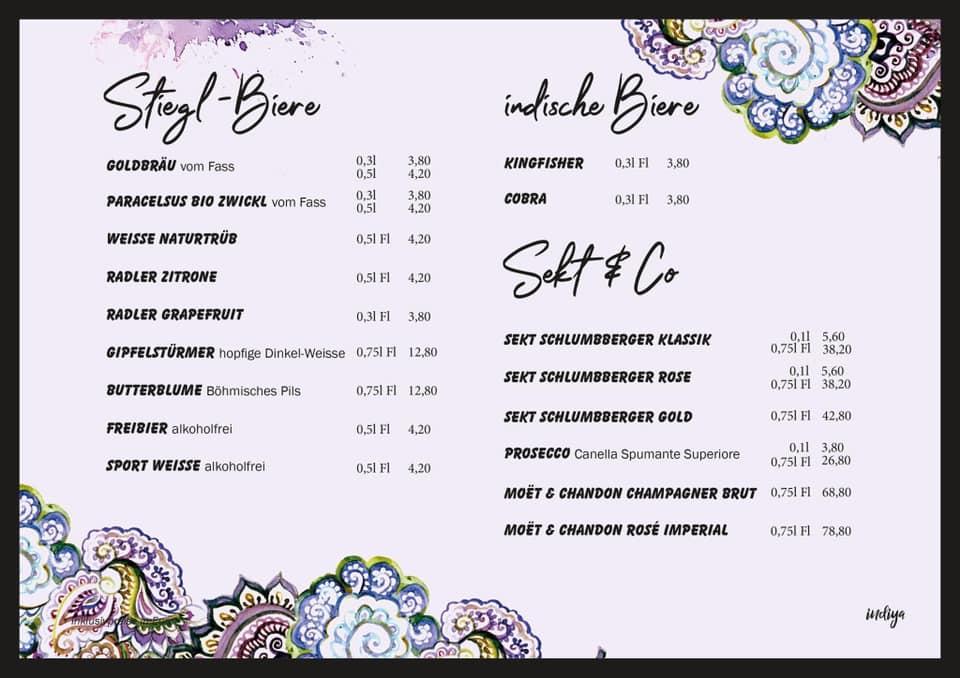 Stiegl-Biere
GOLDBRÄU vom Fass 0,3l 3,80
0,5l 4,20
PARACELSUS BIO ZWICKL vom Fass 0,3l 3,80
0,5l 4,20
WEISSE NATURTRÜB 0,5l Fl 4,20
RADLER ZITRONE 0,5l Fl 4,20
RADLER GRAPEFRUIT 0,3l Fl 3,80
GIPFELSTÜRMER hopfige Dinkel-Weisse 0,75l Fl 12,80
BUTTERBLUME Böhmisches Pils 0,75l Fl 12,80
FREIBIER alkoholfrei 0,5l Fl 4,20
SPORT WEISSE alkoholfrei 0,5l Fl 4,20
indische Biere
KINGFISHER 0,3l Fl 3,80
COBRA 0,3l Fl 3,80
Sekt & Co
SEKT SCHLUMBBERGER KLASSIK 0,1l 5,60
0,75l Fl 38,20
SEKT SCHLUMBBERGER ROSE 0,1l 5,60
0,75l Fl 38,20
SEKT SCHLUMBBERGER GOLD 0,75l Fl 42,80
PROSECCO Canella Spumante Superiore 0,1l 3,80
0,75l Fl 26,80
MOËT & CHANDON CHAMPAGNER BRUT 0,75l Fl 68,80
MOËT & CHANDON ROSÉ IMPERIAL 0,75l Fl 78,80
indiya